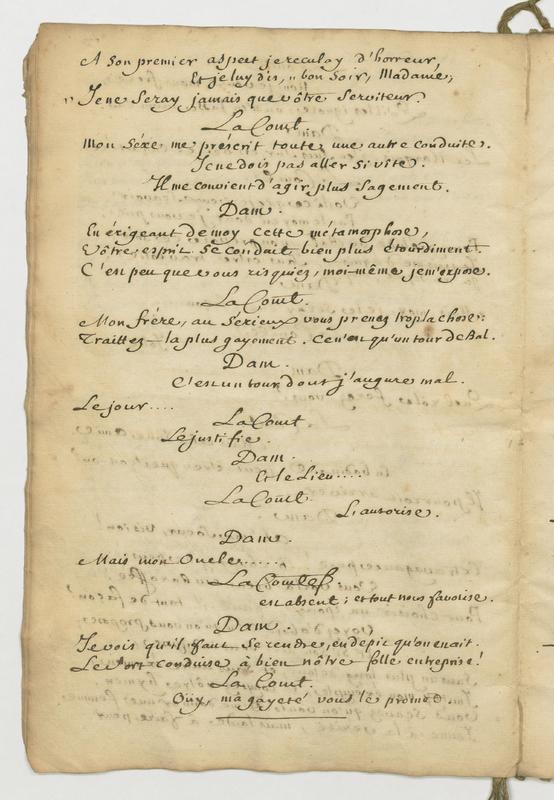 A son premier aspect je reculay d'horreur,
Et je luy dis, „ bon soir, Madame,
„ Je ne seray jamais que vôtre serviteur.
La Comt.
Mon séxe me préscrit toute une autre conduite.
Je ne dois pas aller si vîte.
Il me convient d'agir plus sagement.
Dam.
En érigeant de moy cette métamorphose,
Vôtre esprit se conduit bien plus étourdiment.
C'est peu que vous risquiez, moi-même je m'expose.
La Comt.
Mon frére, au sérieux vous prenez trop la chose:
Traittez-la plus gayement. Ce n'est qu'un tour de Bal.
Dam.
C'est un tour dout j'augure mal.
Le jour....
La Comt
Le justifie.
Dam.
Et le Lieu....
La Comt.
L'autorise.
Dam.
Mais mon Oncle......
La Comtess.
est absent; et tout nous favorise.
Dam.
Je vois qu'il faut se rendre, en dépit qu'on en ait.
Le sort conduise à bien nôtre folle entreprise!
La Comt.
Oüy, ma gayeté vous le promet.